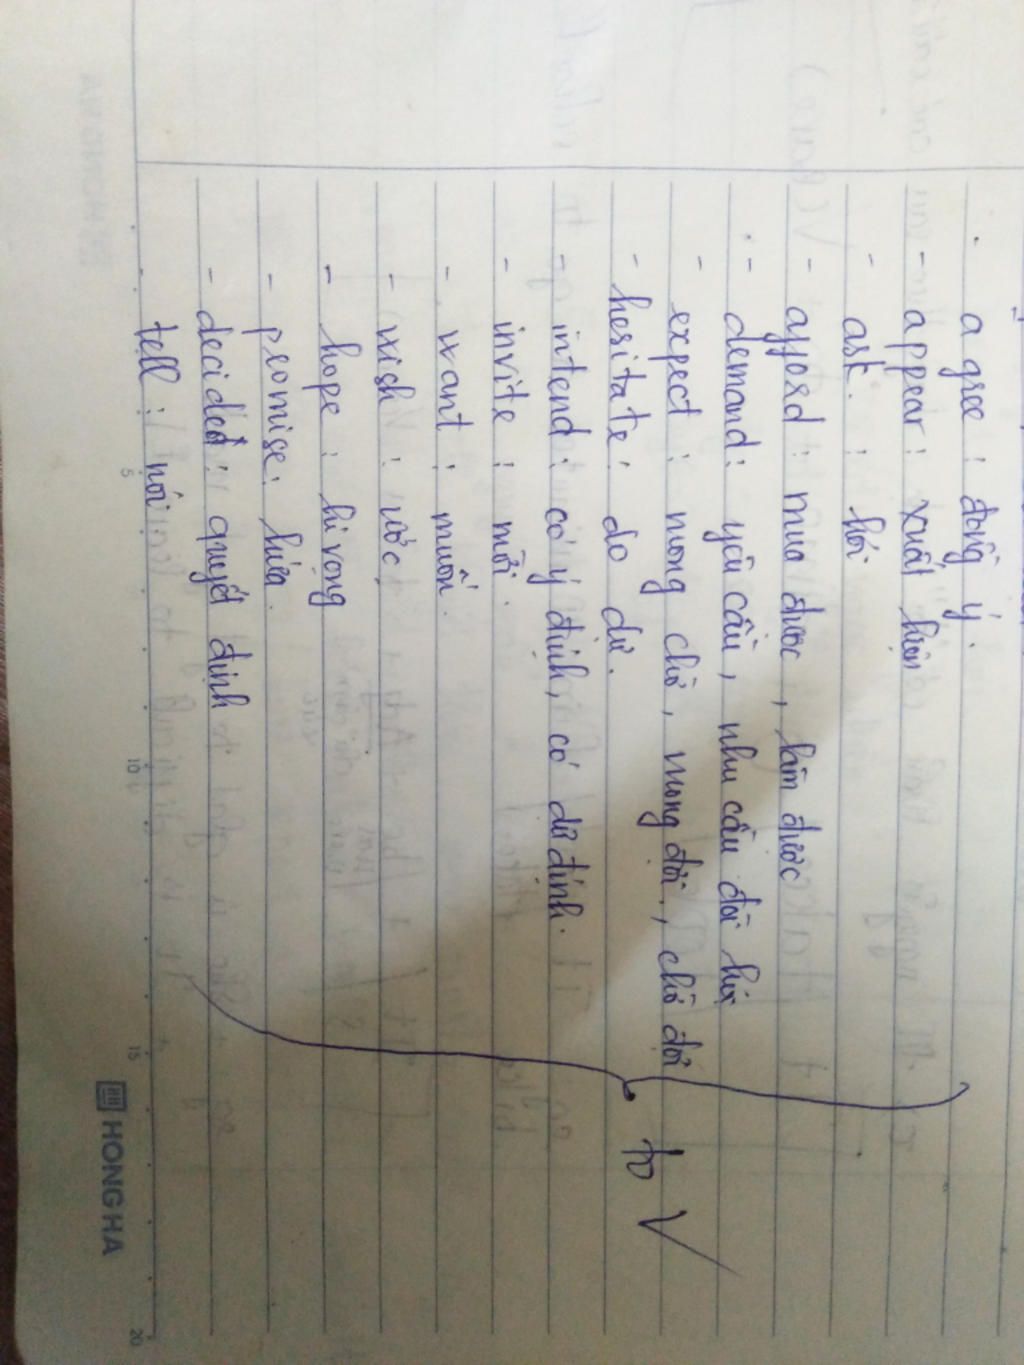 agree : đồng ý.
- appear : xuất hiện
- ask : hỏi
- afford : mua được, làm được
- demand : yêu cầu, nhu cầu đòi hỏi
- expect : mong chờ, mong đợi, chờ đợi
- hesitate : do dự.
- intend : có ý định, có dự định.
- invite : mời.
- want : muốn.
- wish : ước
- hope : hi vọng
- promise : hứa.
- decided : quyết định
- tell : nói
to V
HONG HA
5 10 15 20